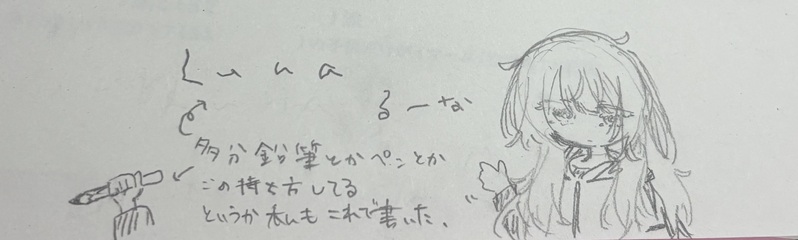 Luna
るーな
多分鉛筆とかペンとか
この持ち方してる
というか 本人も これで書いた。